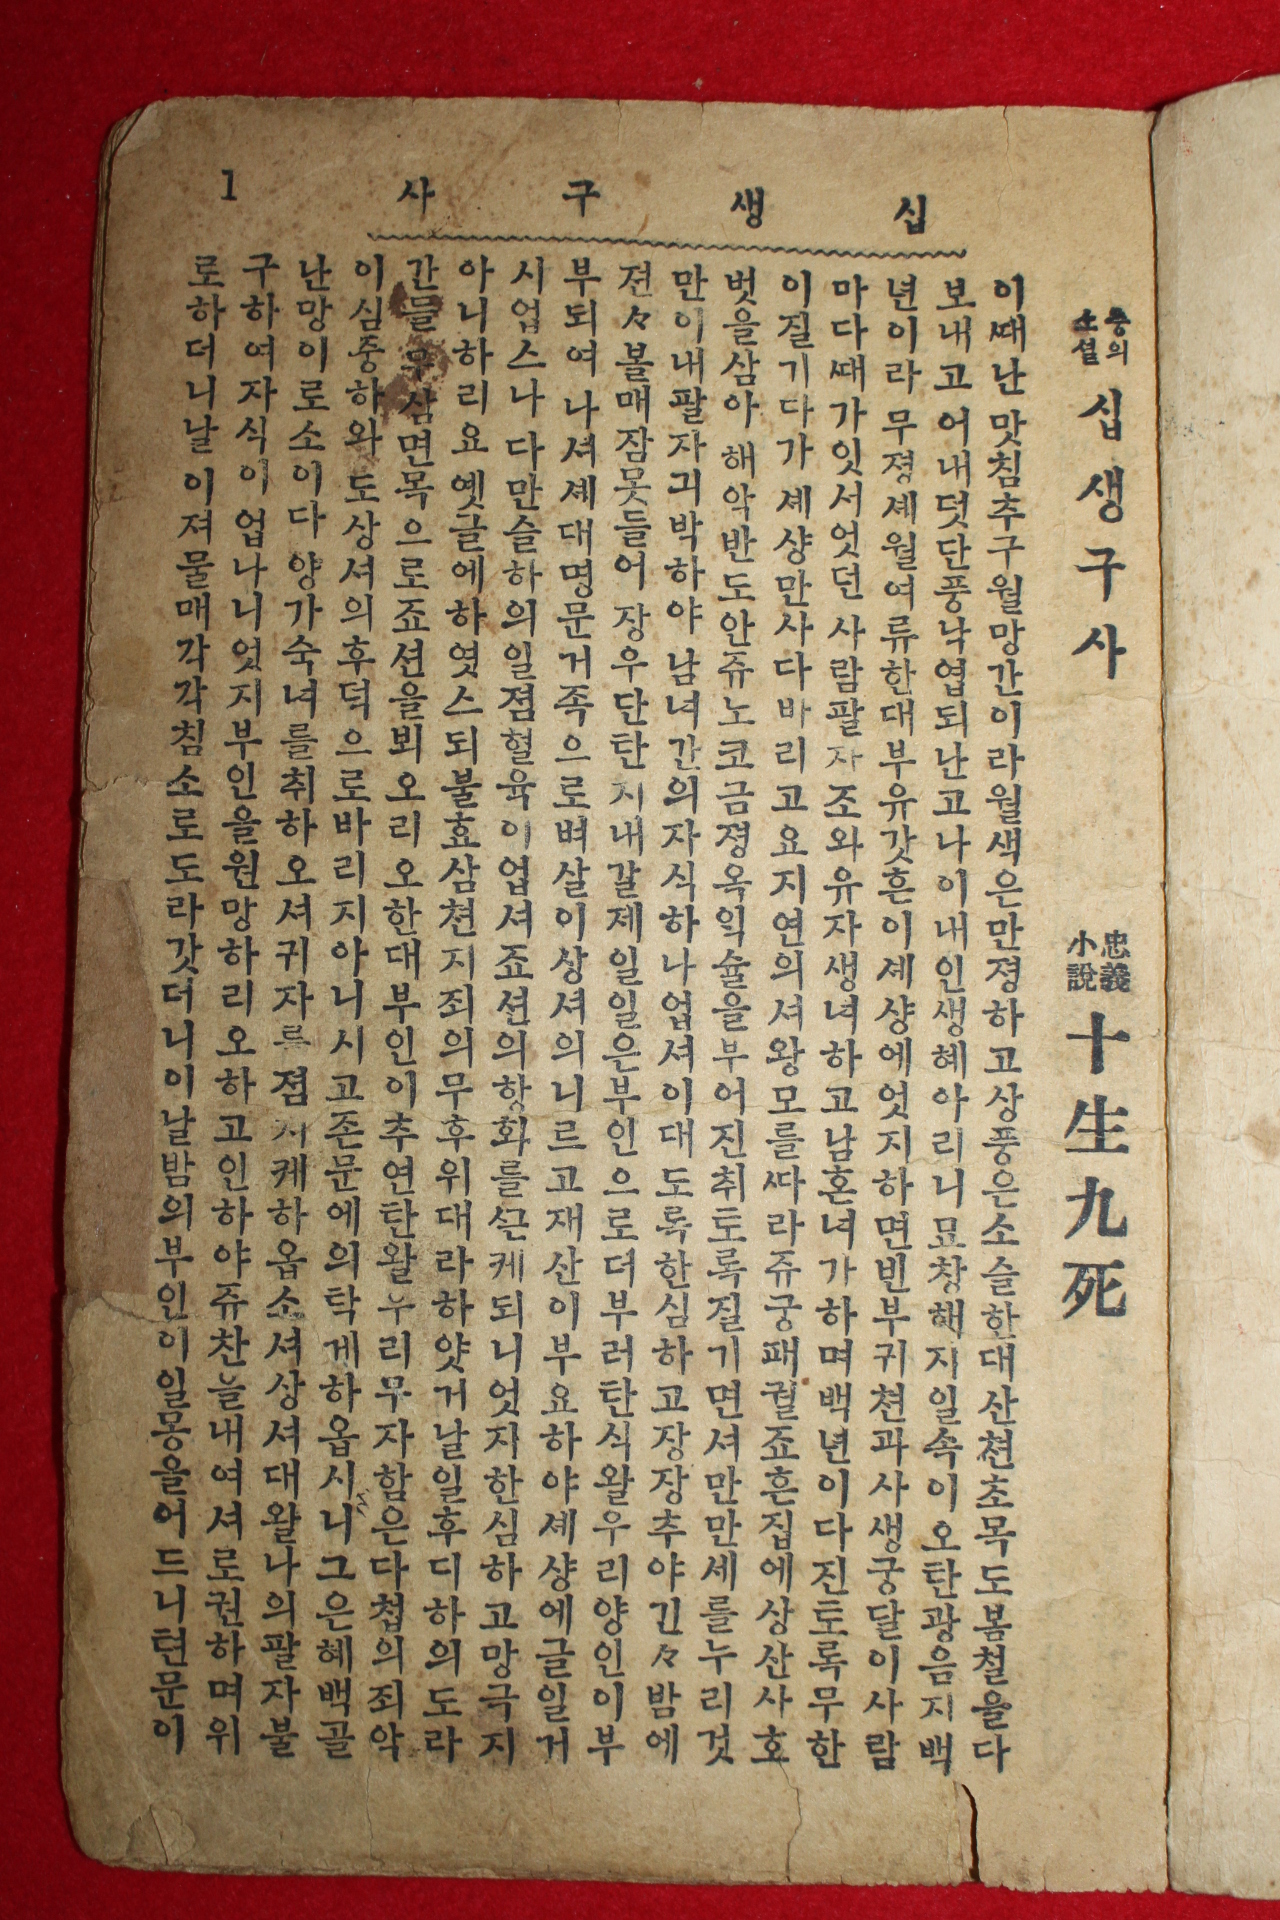 십생구사 1
충의소셜 십생구사 忠義小說 十生九死
이때난맛침추구월망간이라월색은만졍하고상풍은소슬한대산쳔초목도봄철을다
보내고어내덧단풍낙엽되난고나이내인생혜아리니묘창해지일속이오탄광음지백
년이라무졍셰월여류한대부유갓흔이셰샹에엇지하면빈부귀쳔과사생궁달이사람
마다때가잇서엇던사람팔자조와유자생녀하고남혼녀가하며백년이다진토록무한
이질기다가셰샹만사다바리고요지연의셔왕모를따라쥬궁패궐죠흔집에상산사호
벗을삼아해악반도안쥬노코금졍옥익슐을부어진취토록질기면셔만만세를누리것
만이내팔자긔박하야남녀간의자식하나업셔이대도록한심하고장장추야긴々밤에
젼々불매잠못들어장우단탄지내갈제일일은부인으로더부러탄식왈우리양인이부
부되여나셔셰대명문거족으로벼살이상셔의니르고재산이부요하야셰샹에글일거
시업스나다만슬하의일졈혈육이업셔죠션의향화를끈케되니엇지한심하고망극지
아니하리요옛글에하엿스되불효삼쳔지죄의무후위대라하얏거날일후디하의도라
간들무삼면목으로죠션을뵈오리오한대부인이추연탄왈우리무자함은다쳡의죄악
이심즁하와도상셔의후덕으로바리지아니시고존문에의탁게하옵시니그은혜백골
난망이로소이다양가숙녀를취하오셔귀자를졈지케하옵소셔상셔대왈나의팔자불
구하여자식이업나니엇지부인을원망하리오하고인하야쥬찬을내여셔로권하며위
로하더니날이져물매각각침소로도라갓더니이날밤의부인이일몽을어드니텬문이